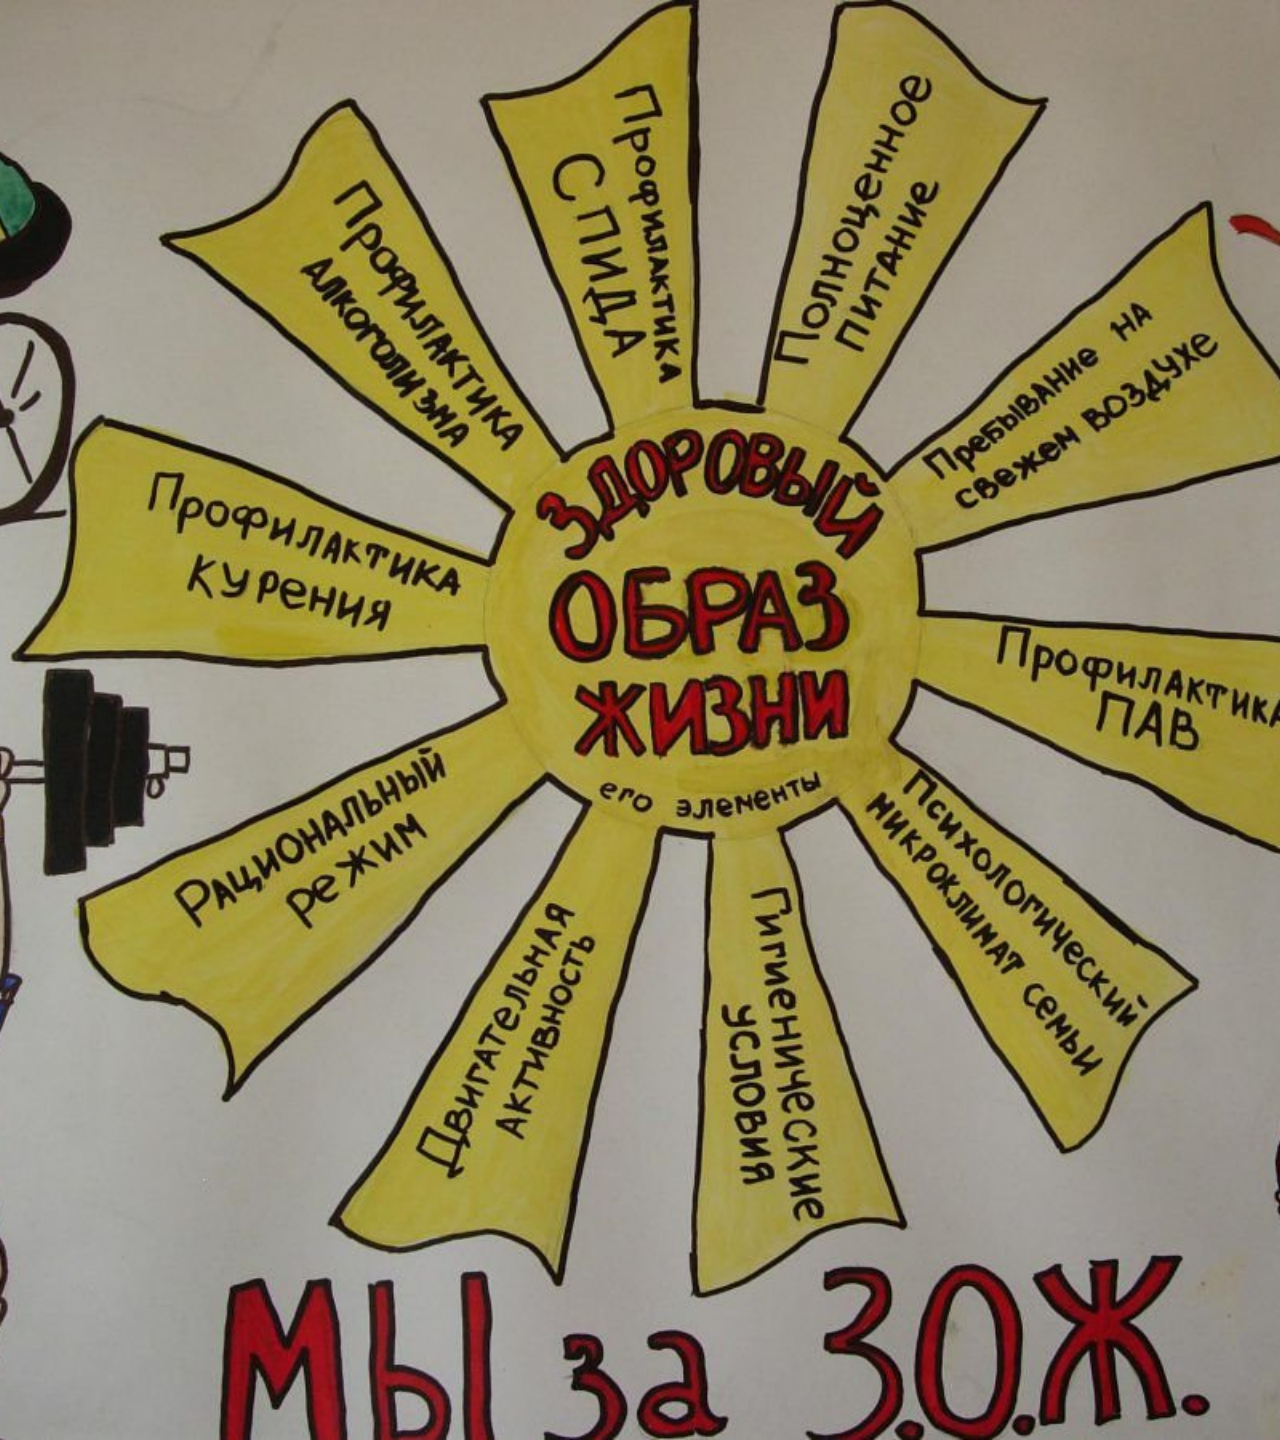 ЗДОРОВЫЙ
ОБРАЗ
ЖИЗНИ
его элементы
Профилактика
СПИДА
Полноценное
питание
Пребывание на
свежем воздухе
Профилактика
ПАВ
Психологический
микроклимат семьи
Гигиенические
условия
Двигательная
активность
Рациональный
режим
Профилактика
курения
Профилактика
алкоголизма
МЫ за З.О.Ж.